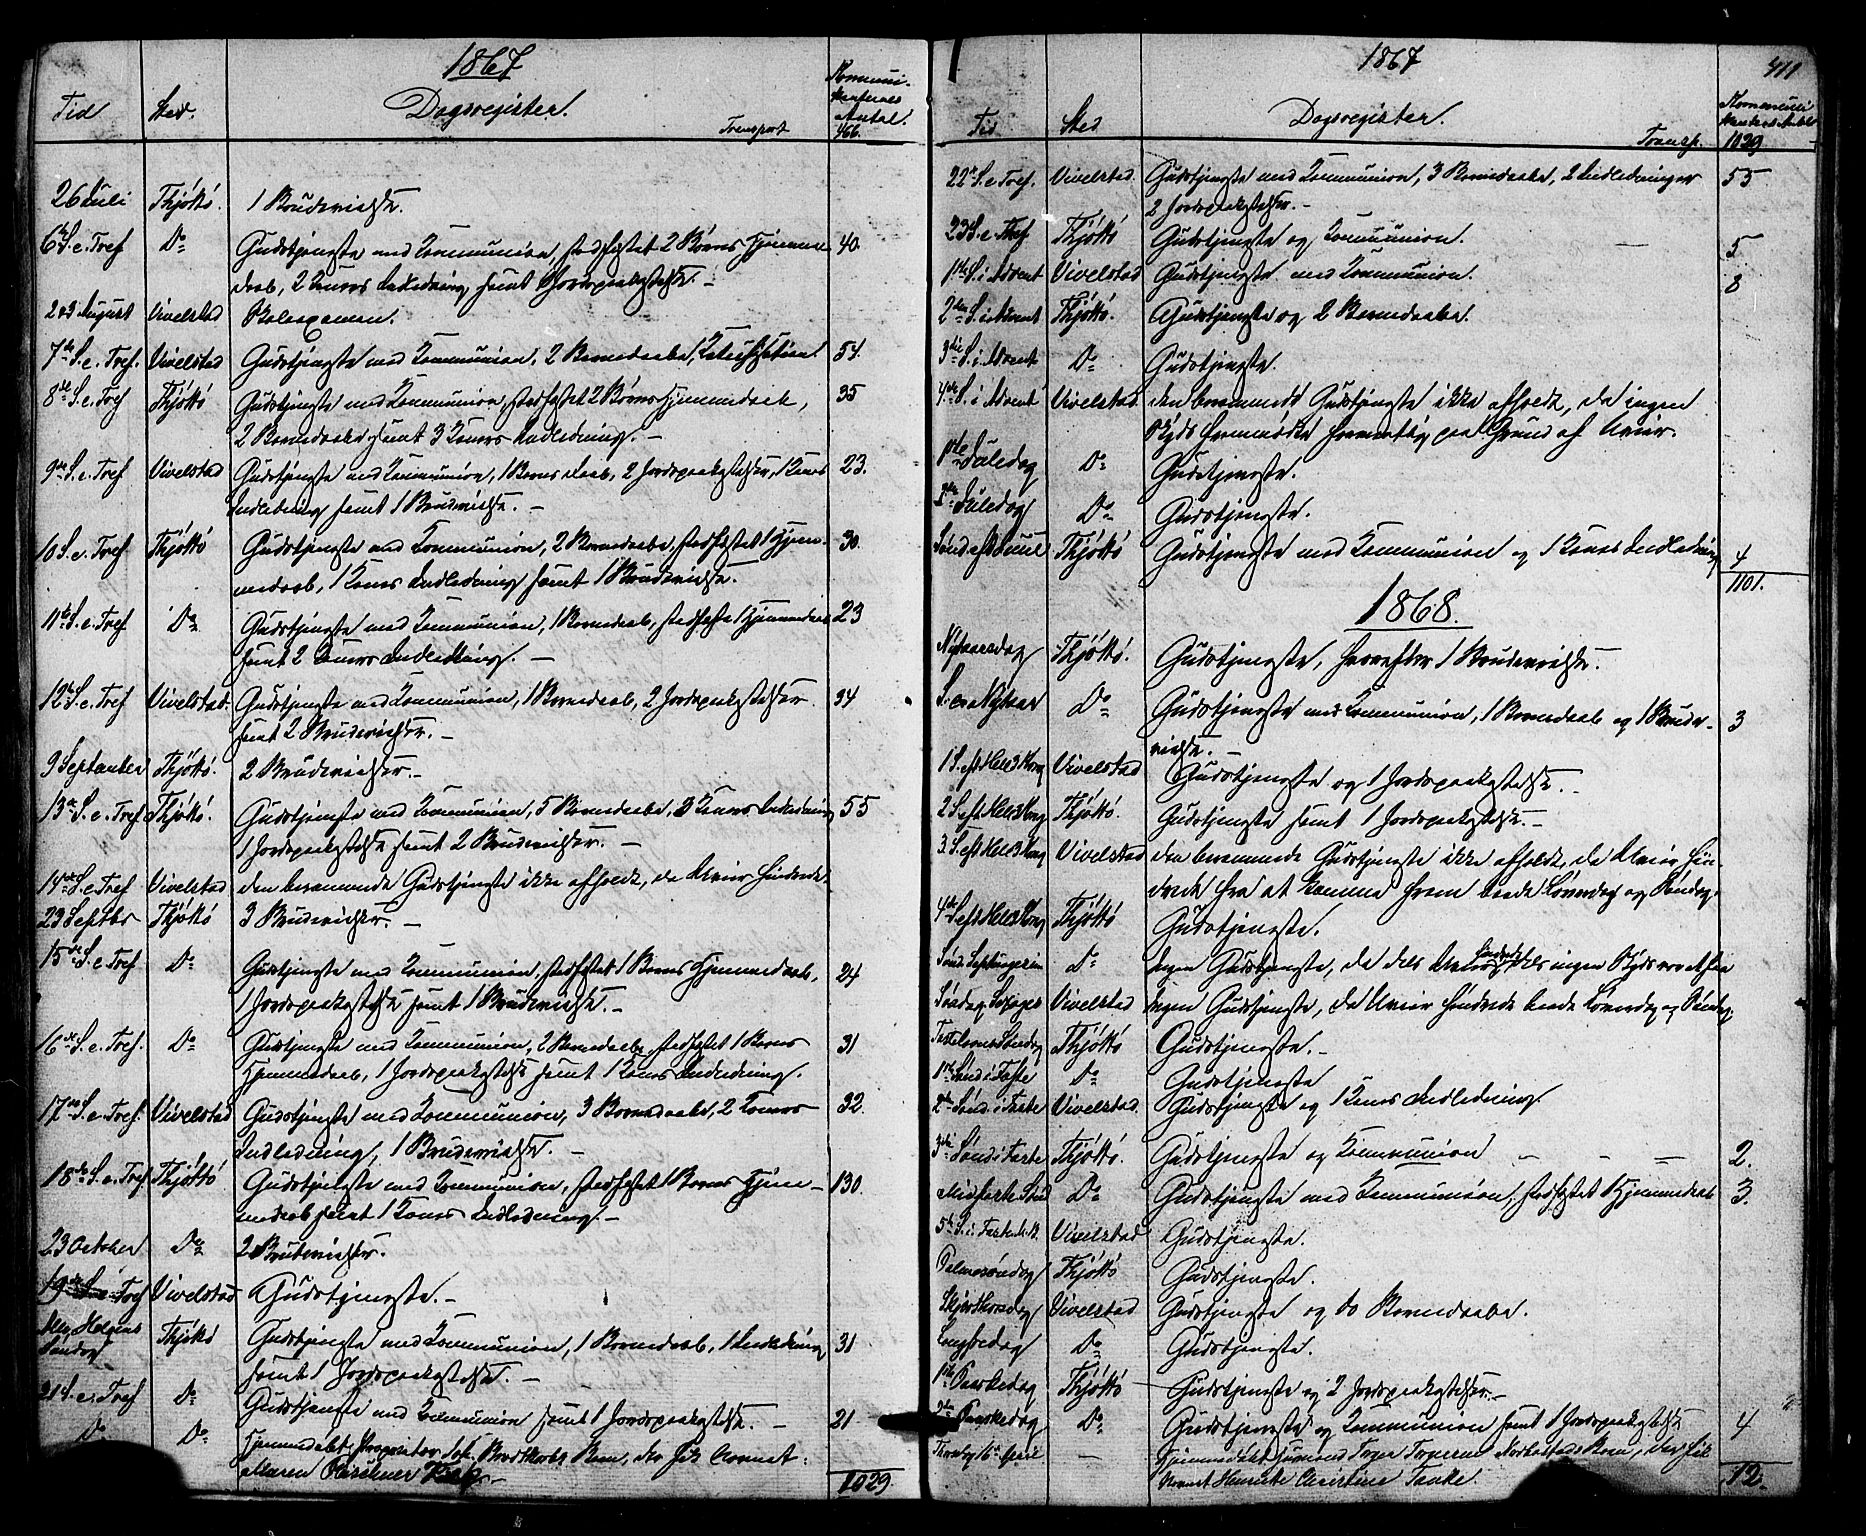 1867
Tid Sted. Dagsregister. Kommuni-
kanternes
Antal.
Transport 466.
26 Juli Thjøttø. 1 Brudevielse.
6te S. e. Tref Do Gudstjeneste med Communion, stadfæstet 2 Børns Hjemme- 40
daab, 2 Koners Indledning samt Jordpaakastelse. –
2 & 3 August Vivelstad Skoleexamen.
7de S. e. Tref. Vivelstad Gudstjeneste med Communion, 2 Barnedaabe, Katechisation. 54.
8de S. e. Tref Thjøttø Gudstjeneste med Communion, stadfæstet 2 Børns Hjemmedaab, 35
2 Barnedaabe samt 3 Koners Indledning. –
9de S. e. Tref Vivelstad Gudstjeneste med Communion, 1 Barns Daab, 2 Jordpaakastelser, 1 Kones 23.
Indledning samt 1 Brudevielse. –
10 S. e. Tref Thjøttø Gudstjeneste med Communion, 2 Barnedaabe, stadfæstet 1 Hjem- 30.
medaab, 1 Kones Indledning samt 1 Brudevielse.
11te S. e. Tref Do Gudstjeneste med Communion, 1 Barnedaab, stadfæstet 1 Hjemmedaab 23
samt 2 Koners Indledning. –
12te S. e. Tref Vivelstad. Gudstjeneste med Communion, 1 Barnedaab, 2 Jordpaakastelser 34
samt 2 Brudevielser. –
9 September Thjøttø. 2 Brudevielser. –
13de S. e. Tref Thjøttø. Gudstjeneste med Communion, 5 Barnedaabe, 3 Koners Indledning 55
1 Jordpaakastelse samt 2 Brudevielser. –
14de S. e. Tref Vivelstad den berammede Gudstjeneste ikke afholdt, da Uveir hindrede.
23 Septbr Thjøttø 3 Brudevielser. –
15de S. e Tref Do Gudstjeneste med Communion, stadfæstet 1 Barns Hjemmedaab, 24
1 Jordpaakastelse samt 1 Brudevielse. –
16de S. e. Tref. Do Gudstjeneste med Communion, 2 Barnedaabe, stadfæstet 1 Barns 31
Hjemmedaab, 1 Jordpaakastelse samt 1 Kones Indledning.
17de S. e. Tref. Vivelstad Gudstjeneste med Communion, 3 Barnedaabe, 2 Koners 32.
Indledning, 1 Brudevielse. –
18de S. e. Tref Thjøttø Gudstjeneste med Communion, stadfæstet 1 Barns Hjem- 130.
medaab samt 1 Kones Indledning. –
23 October Do 2 Brudevielser.
19de S. e. Tref Vivelstad Gudstjeneste. –
Alle Helgens
Søndag Thjøttø Gudstjeneste med Communion, 1 Barnedaab, 1 Indledning 31
samt 1 Jordpaakastelse. –
21 S. e. Tref Do Gudstjeneste med Communion samt 1 Jordpaakastelse. – 21
Do Do Hjemmedøbt Proprietær Joh. Brodtkorbs Barn, der fik Navnet:
1029

1867 411
Tid Sted Dagsregister. Kommuni-
Transp. 1029
22de S. e. Tref. Vivelstad Gudstjeneste med Communion, 3 Barnedaabe, 2 Indledninger 55
2 Jordpaakastelser. –
23 S. e. Tref Thjøttø Gudstjeneste og Communion. – 5
1ste S. i Advent Vivelstad Gudstjeneste med Communion. 8
2den S. i Advent Thjøttø. Gudstjeneste og 2 Barnedaabe.
3die S. i Advent Do Gudstjeneste.
4de S. i Advent Vivelstad. den berammede Gudstjeneste ikke afholdt, da ingen
Skyds paa Grund af Uveir.
1ste Juledag Do Gudstjeneste.
2den Juledag Do Gudstjeneste.
Sønd. eft Juul Thjøttø Gudstjeneste med Communion og 1 Kones Indledning 4
1101.
1868.
Nytaarsdag Thjøttø. Gudstjeneste, herefter 1 Brudevielse. –
S. e. Nytaar Do Gudstjeneste med Communion, 1 Barnedaab og 1 Brude- 3
vielse. –
1 S. eft Hell 3 Kong Vivelstad Gudstjeneste og 1 Jordpaakastelse. –
2 S. eft Hell 3 Kong Thjøttø. Gudstjeneste samt 1 Jordpaakastelse. –
3. S. eft Hell 3 Kong Vivelstad den berammede Gudstjeneste ikke afholdt, da Uveir hin-
drede fra at komme frem baade Løverdag og Søndag.
4de S eft Hell 3 Kong Thjøttø Gudstjeneste.
Sønd. Septuagesima Do Ingen Gudstjeneste, da dels Uveir hindrede, dels ingen Skyds var
Søndag Sexages Vivelstad Ingen Gudstjeneste, da Uveir hindrede baade Løverdag og Søndag.
Fastelavns Søndag Thjøttø Gudstjeneste. –
1ste Sønd i Faste Do Gudstjeneste
2den Sønd. i Faste Vivelstad. Gudstjeneste og 1 Kones Indledning
3die Sønd i Faste Thjøttø. Gudstjeneste og Communion – – – 2.
Midfaste Sønd Do Gudstjeneste med Communion, stadfæstet 1 Hjemmedaab 3.
5te S. i Faste Vivelstad Gudstjeneste.
Palmesøndag Thjøttø Gudstjeneste.
Skjærthorsdag Vivelstad Gudstjeneste og Barnedaabe.
Langfredag Do Gudstjeneste.
1ste Paaskedag Thjøttø Gudstjeneste og 2 Jordpaakastelser. –
2den Paaskedag Do Gudstjeneste og Communion samt 1 Jordpaakastelse 4
Torsdag 16 April – Hjemmedøbt Barn, der fik
Navnet Henrikke Christine Tanke. 12.